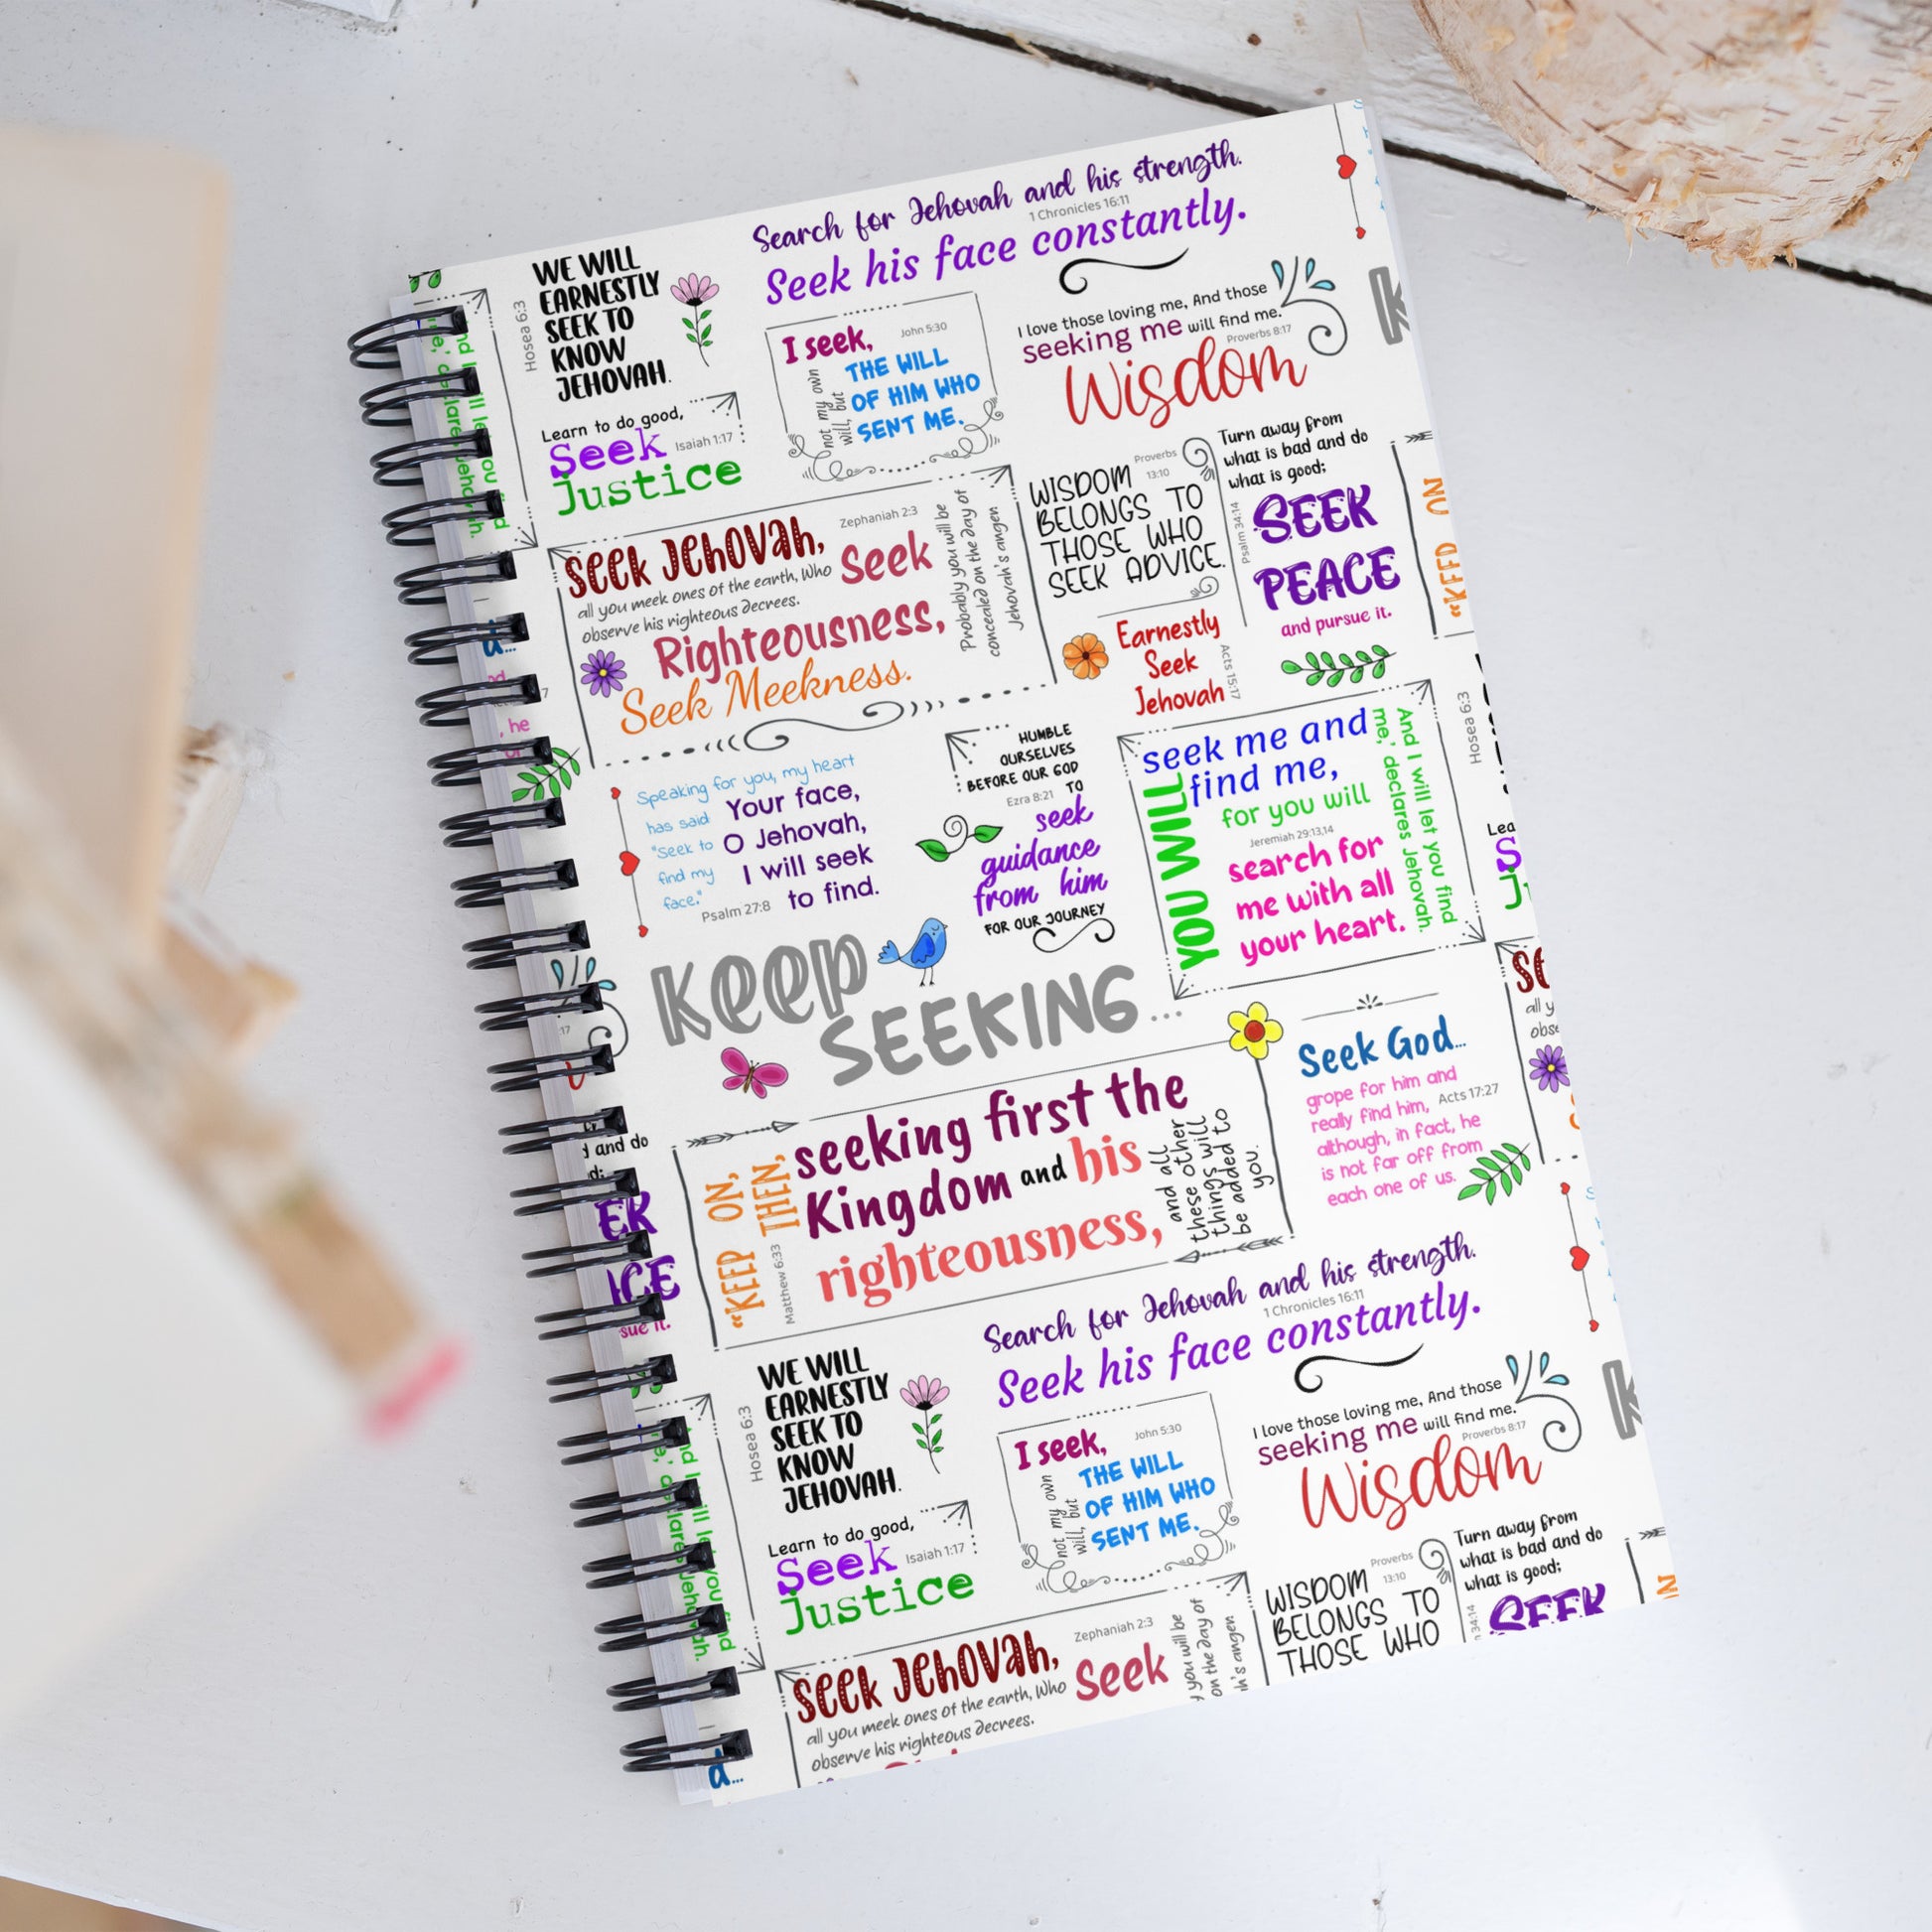 Search for Jehovah and his strength.
1 Chronicles 16:11
Seek his face constantly.
Hosea 6:3
WE WILL
EARNESTLY
SEEK TO
KNOW
JEHOVAH.
Learn to do good,
Seek
Isaiah 1:17
Justice
I seek,
John 5:30
not my own
will, but
THE WILL
OF HIM WHO
SENT ME.
I love those loving me, And those
seeking me will find me.
Proverbs 8:17
Wisdom
Seek Jehovah,
Zephaniah 2:3
all you meek ones of the earth, Who
observe his righteous decrees.
Seek
Righteousness,
Seek Meekness.
Probably you will be
concealed on the day of
Jehovah's angen
WISDOM
Proverbs
13:10
BELONGS TO
THOSE WHO
SEEK ADVICE.
Turn away from
what is bad and do
what is good;
Psalm 34:14
SEEK
PEACE
and pursue it.
Earnestly
Seek
Jehovah
Acts 15:17
Speaking for you, my heart
has said:
"Seek to
find my
face."
Your face,
O Jehovah,
I will seek
to find.
Psalm 27:8
HUMBLE
OURSELVES
BEFORE OUR GOD
Ezra 8:21
TO
seek
guidance
from him
FOR OUR JOURNEY
YOU WILL
seek me and
find me,
for you will
Jeremiah 29:13,14
search for
me with all
your heart.
And I will let you find
me,' declares Jehovah.
Keep
SEEKING...
"KEEP ON,
THEN,
Matthew 6:33
seeking first the
Kingdom and his
righteousness,
and all
these other
things will
be added to
you.
Seek God...
grope for him and
really find him,
Acts 17:27
although, in fact, he
is not far off from
each one of us.
Search for Jehovah and his strength.
1 Chronicles 16:11
Seek his face constantly.
Hosea 6:3
WE WILL
EARNESTLY
SEEK TO
KNOW
JEHOVAH.
Learn to do good,
Seek
Isaiah 1:17
Justice
I seek,
John 5:30
not my own
will, but
THE WILL
OF HIM WHO
SENT ME.
I love those loving me, And those
seeking me will find me.
Proverbs 8:17
Wisdom
Seek Jehovah,
Zephaniah 2:3
all you meek ones of the earth, Who
observe his righteous decrees.
Seek
you will be
on the day of
h's angen
WISDOM
Proverbs
13:10
BELONGS TO
THOSE WHO
Turn away from
what is bad and do
what is good;
34:14
SEEK
Hosea 6:3
Lea
all y
obse
and do
sue it.